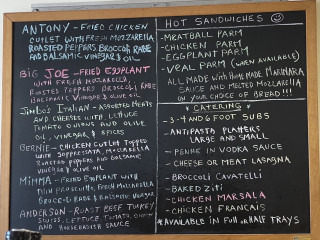 ANTONY - FRIED CHICKEN
CUTLET WITH FRESH MOZZARELLA
ROASTED PEPPERS BROCCOLI RABE
AND BALSAMIC VINEGAR & OIL
BIG JOE - FRIED EGGPLANT
WITH FRESH MOZZARELLA,
ROASTED PEPPERS BROCCOLI RABE
BALSAMIC VINEGAR & OLIVE OIL
Jimbo's Italian - ASSORTED MEATS
AND CHEESES WITH LETTUCE
TOMATO ONIONS AND OLIVE
OIL, VINEGAR, & SPICES
GERNIE - CHICKEN CUTLET TOPPED
WITH SOPPRESSATA, MOZZARELLA
ROASTED PEPPERS AND BALSAMIC
VINEGAR & OLIVE OIL
MIMMA - FRIED EGGPLANT WITH
THIN PROSCIUTTO, FRESH MOZZARELLA
BROCCOLI RABE & BALSAMIC VINEGAR
ANDERSON - ROAST BEEF TURKEY
SWISS, LETTUCE TOMATO, ONION
AND HORSERADISH SAUCE
HOT SANDWICHES
- MEATBALL PARM
- CHICKEN PARM
- EGGPLANT PARM
- VEAL PARM (WHEN AVAILABLE)
ALL MADE WITH HOME MADE MARINARA
SAUCE AND MELTED MOZZARELLA
ON YOUR CHOICE OF BREAD!!!
* CATERING *
- 3-4 AND 6 FOOT SUBS
- ANTIPASTA PLATTERS
LARGE AND SMALL
- PENNE IN VODKA SAUCE
- CHEESE OR MEAT LASAGNA
- BROCCOLI CAVATELLI
- BAKED ZITI
- CHICKEN MARSALA
- CHICKEN FRANCAIS
*AVAILABLE IN FULL OR HALF TRAYS